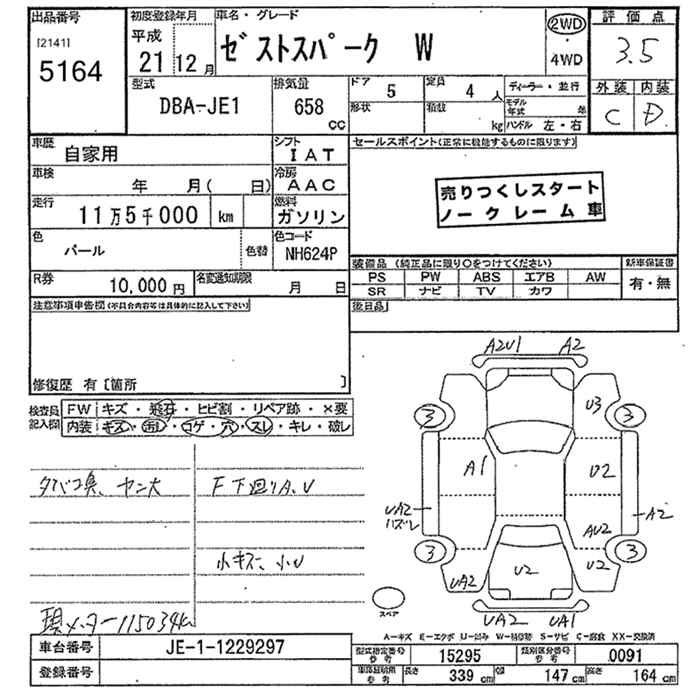 出品番号 [2141] 5164
初度登録年月 平成 21年 12月
車名・グレード ゼストスパーク W
2WD ・ 4WD
評価点 3.5
外装 内装
C D
型式 DBA-JE1
排気量 658 CC
ドア 5 定員 4人
形状 積数 kg
ディーラー・並行
モデル年式 年
ハンドル 左・右
車歴 自家用
シフト IAT
セールスポイント(正常に機能するものに限ります)
車検 年 月( 日)
冷房 AAC
売りつくしスタート
ノークレーム車
走行 11万5千000 km
燃料 ガソリン
色 パール 色替
色コード NH624P
装備品 (純正品に限り○をつけてください) 新車保証書
PS PW ABS エアB AW 有・無
SR ナビ TV カワ
R券 10,000円
名変通知期限 月 日
後日品
注意事項申告欄(不具合内容等は具体的に記入して下さい)
修復歴 有 [箇所 ]
検査員記入欄
FW キズ・飛石・ヒビ割・リペア跡・×要
内装 キズ・汚れ・コゲ・穴・スレ・キレ・破レ
タバコ臭、ヤニ大
F下廻りA、U
小キズ、小U
現メーター115034km
A2U1 A2
3 U3 3
A1 U2
UA2 ハズレ A2
AU2
3 UA2 U2 U2 3
UA2 UA1
スペア
A-キズ E-エクボ U-凹み W-補修跡 S-サビ C-腐食 XX-交換済
車台番号 JE-1-1229297
型式指定番号 参考 15295 類別区分番号 参考 0091
登録番号
車庫証明用 参考 長さ 339 cm 幅 147 cm 高さ 164 cm